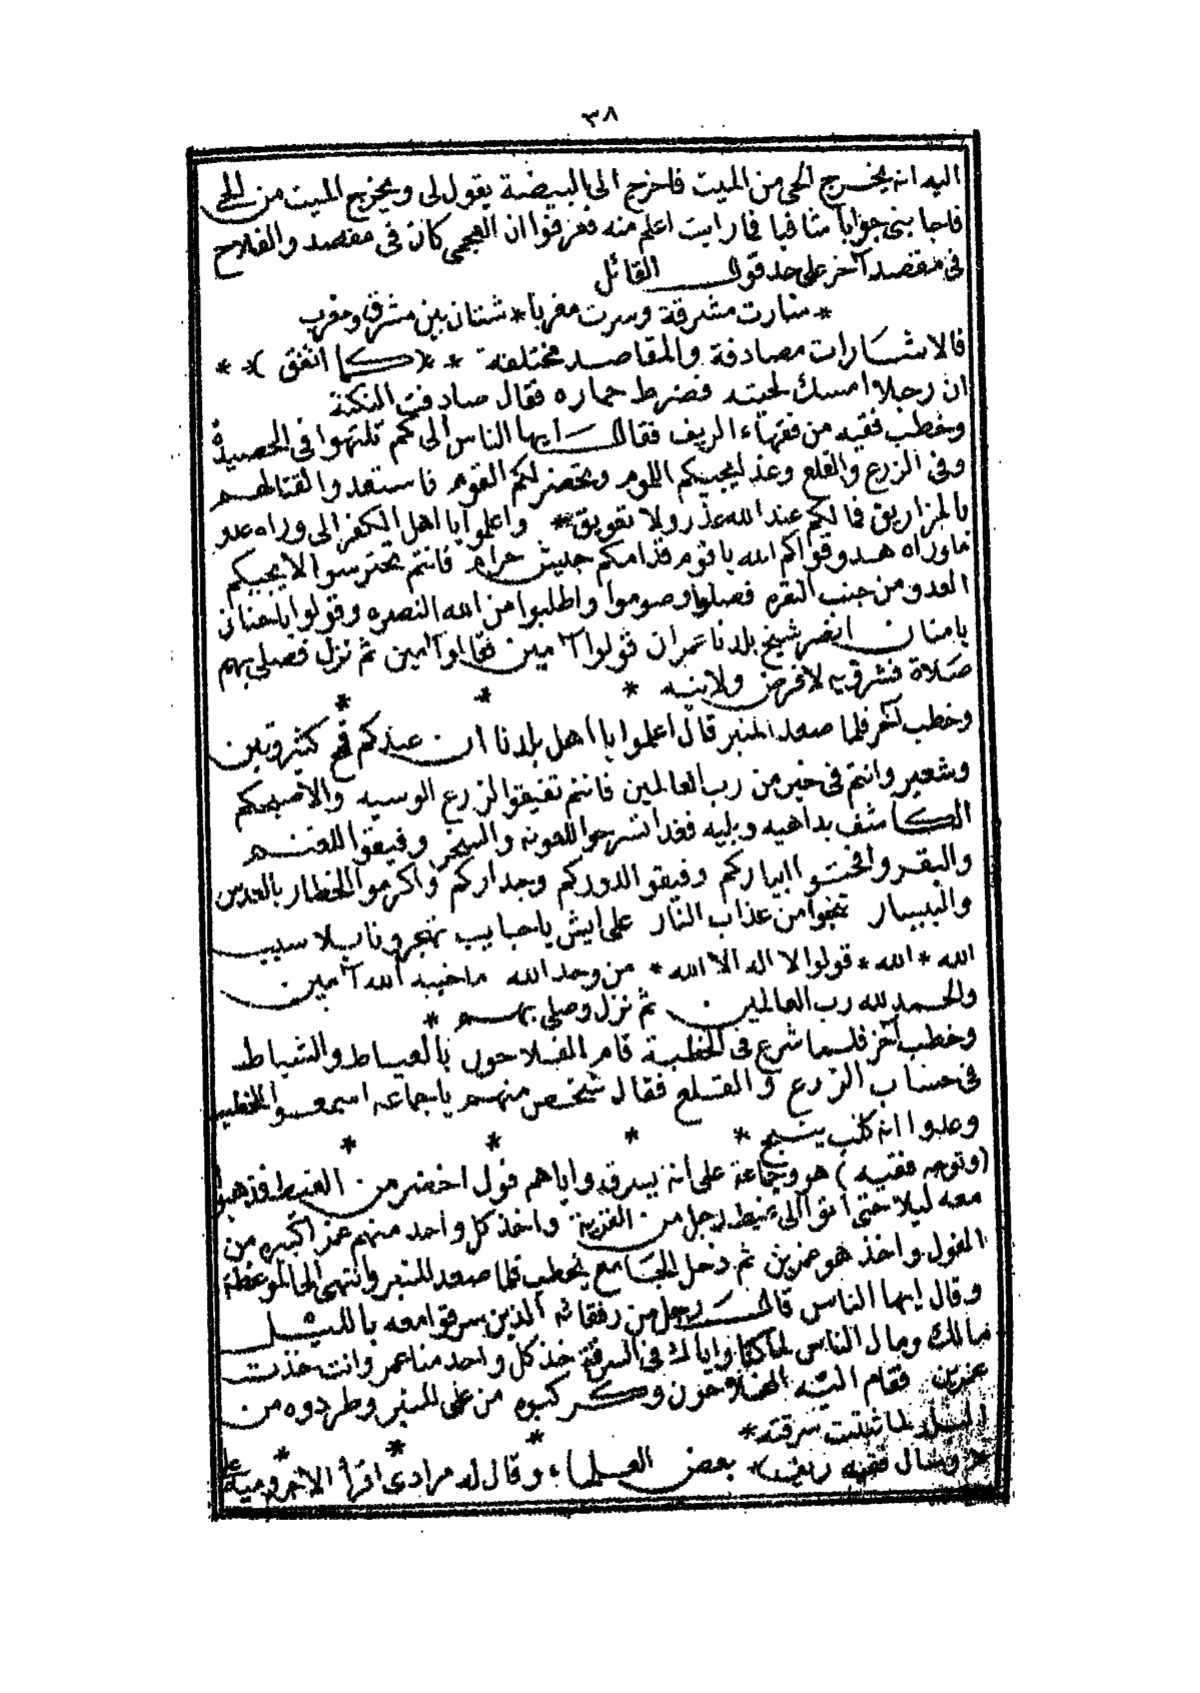 ٣٨
اليه انه يخرج الحى من الميت فاخرج الى البيضة يقول لى ويخرج الميت من الحى
فاجابنى جوابا شافيا فما رايت اعلم منه فعرفوا ان العجمى كان فى مقصد والفلاح
فى مقصد آخر على حد قول القائل
* سارت مشرقة وسرت مغربا * شتان بين مشرق ومغرب
فالاشارات مصادفة والمقاصد مختلفة * *( كما اتفق )* *
ان رجلا امسك لحيته فضرط حماره فقال صادفت النكتة
وخطب فقيه من فقهاء الريف فقال ايها الناس الى كم تلتهوا فى الحصيدة
وفى الزرع والقلع وغد ليجيكم اللوم ويحضر لكم القوم فاستعدوا لقتالهم
بالمزاريق فما لكم عند الله عذر ولا تعويق * واعلموا يا اهل الكفر الى وراه عدو
ما وراه هدو قواكم الله يا قوم قدامكم جيش حرام فانتم تحترسوا لا يجيكم
العدو من جنب النقره فصلوا وصوموا واطلبوا من الله النصره وقولوا يا حنان
يا منان انصر شيخ بلدنا عمران قولوا آمين فقالوا آمين ثم نزل فصلى بهم
صلاة مشرقيه لا فرض ولا نيه * * *
وخطب آخر فلما صعد المنبر قال اعلموا يا اهل بلدنا ان عندكم قمح كثير وتبن
وشعير وانتم فى خير من رب العالمين فانتم تفيقوا لزرع الوسيه والا صبحكم
الكاشف بداهيه وبليه فغدا تسرحوا للعونه والسخر وفيقوا للغنم
والبقر وافحتوا ابياركم وفيقو الدوركم وجداركم واكرموا الخطار بالعدس
والبيسار تنجوا من عذاب النار على ايش يا حبايب تهجرونا بلا سبب
الله * الله * قولوا لا اله الا الله * من وحد الله ما خيبه الله آمين
والحمد لله رب العالمين ثم نزل وصلى بهم *
وخطب آخر فلما شرع فى الخطبة قام الفلاحون بالعياط والشياط
فى حساب الزرع والقلع فقال شخص منهم يا جماعه اسمعوا الخطيب
وعدوا انه كلب ينبح * * * *
(وتوجه فقيه) هو وجماعة على انه يسرقه واياهم فول اخضر من الغيط فذهبوا
معه ليلا حتى اتوا الى غيط رجل من القرية واخذ كل واحد منهم غمر اكبيره من
الفول واخذ هو غمرين ثم دخل الجامع يخطب فلما صعد المنبر وانتهى الى الموعظة
وقال ايها الناس قال رجل من رفقائه الذين سرقوا معه بالليل
مالك ومال الناس لما كنا واياك فى السرقة خذ كل واحد منا غمر وانت خذت
غمرين فقام اليه الفلاحون وكركبوه من على المنبر وطردوه من
البلد لما ثبتت سرقته * * * *
*(وسال فقيه ريفى)* بعض العلماء وقال له مرادى اقرأ الاجرومية على